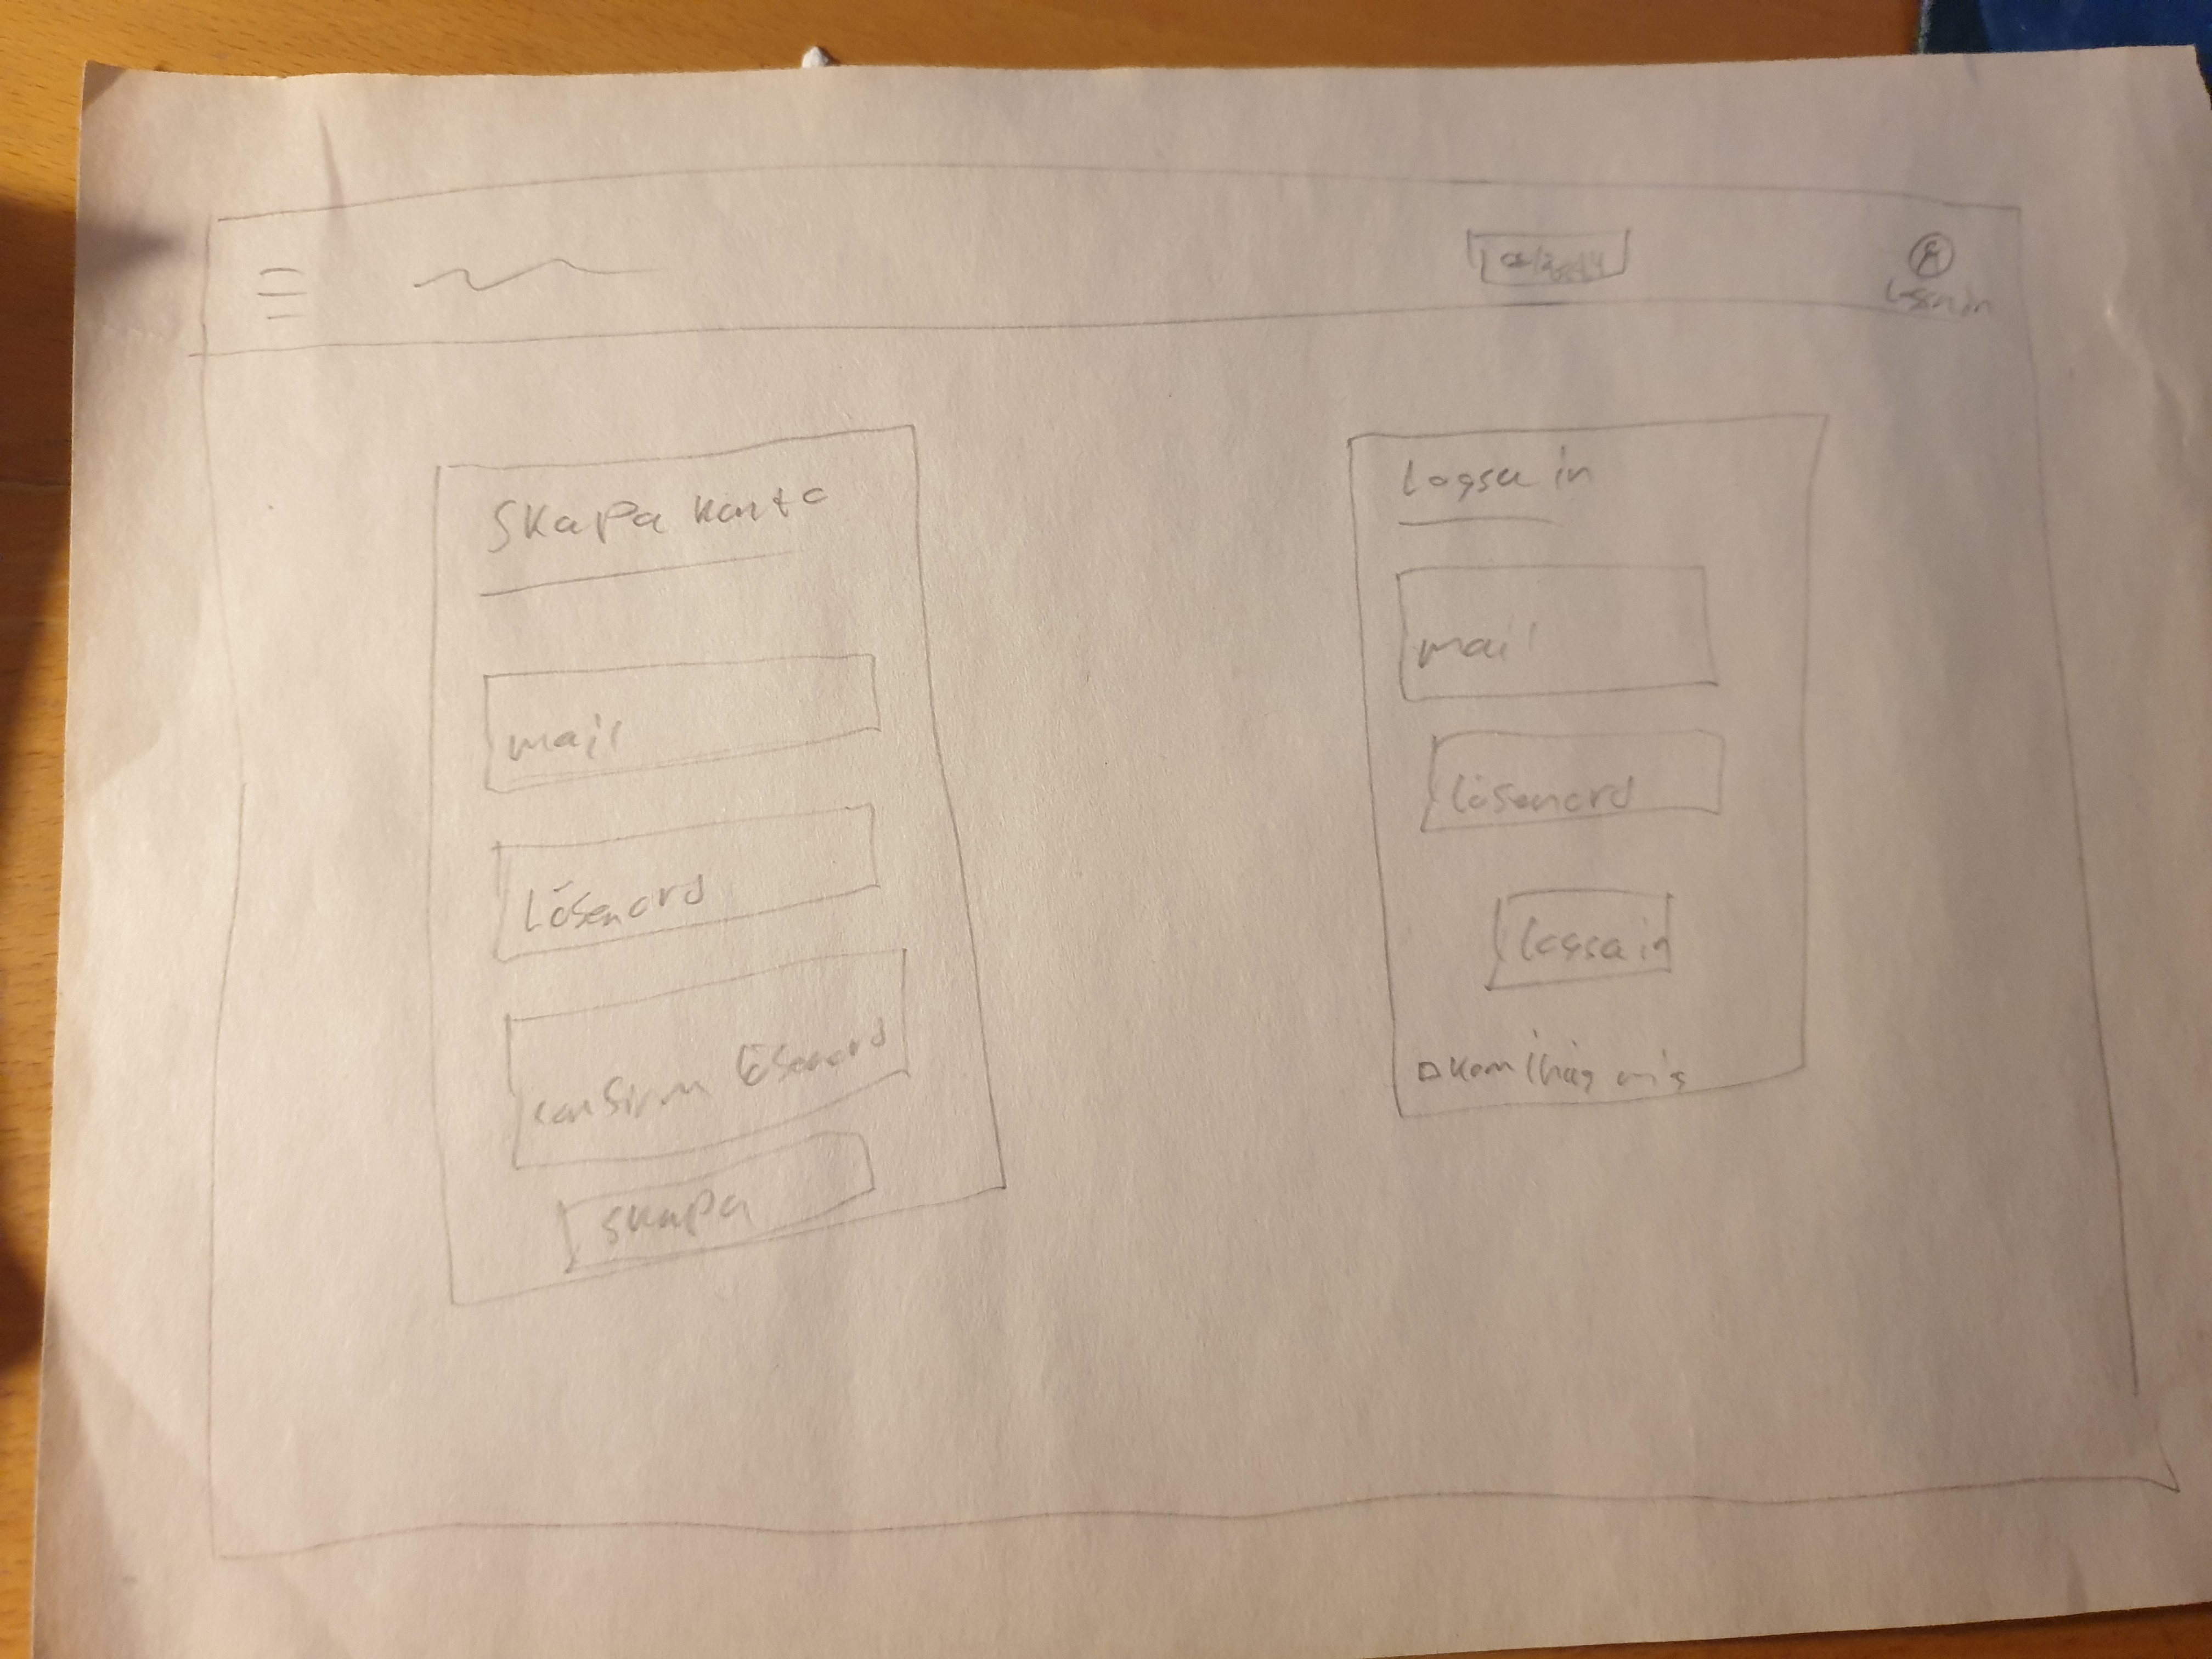 Logga in
Skapa konto
mail
Lösenord
confirm lösenord
skapa
Logga in
mail
lösenord
logga in
kom ihåg mig